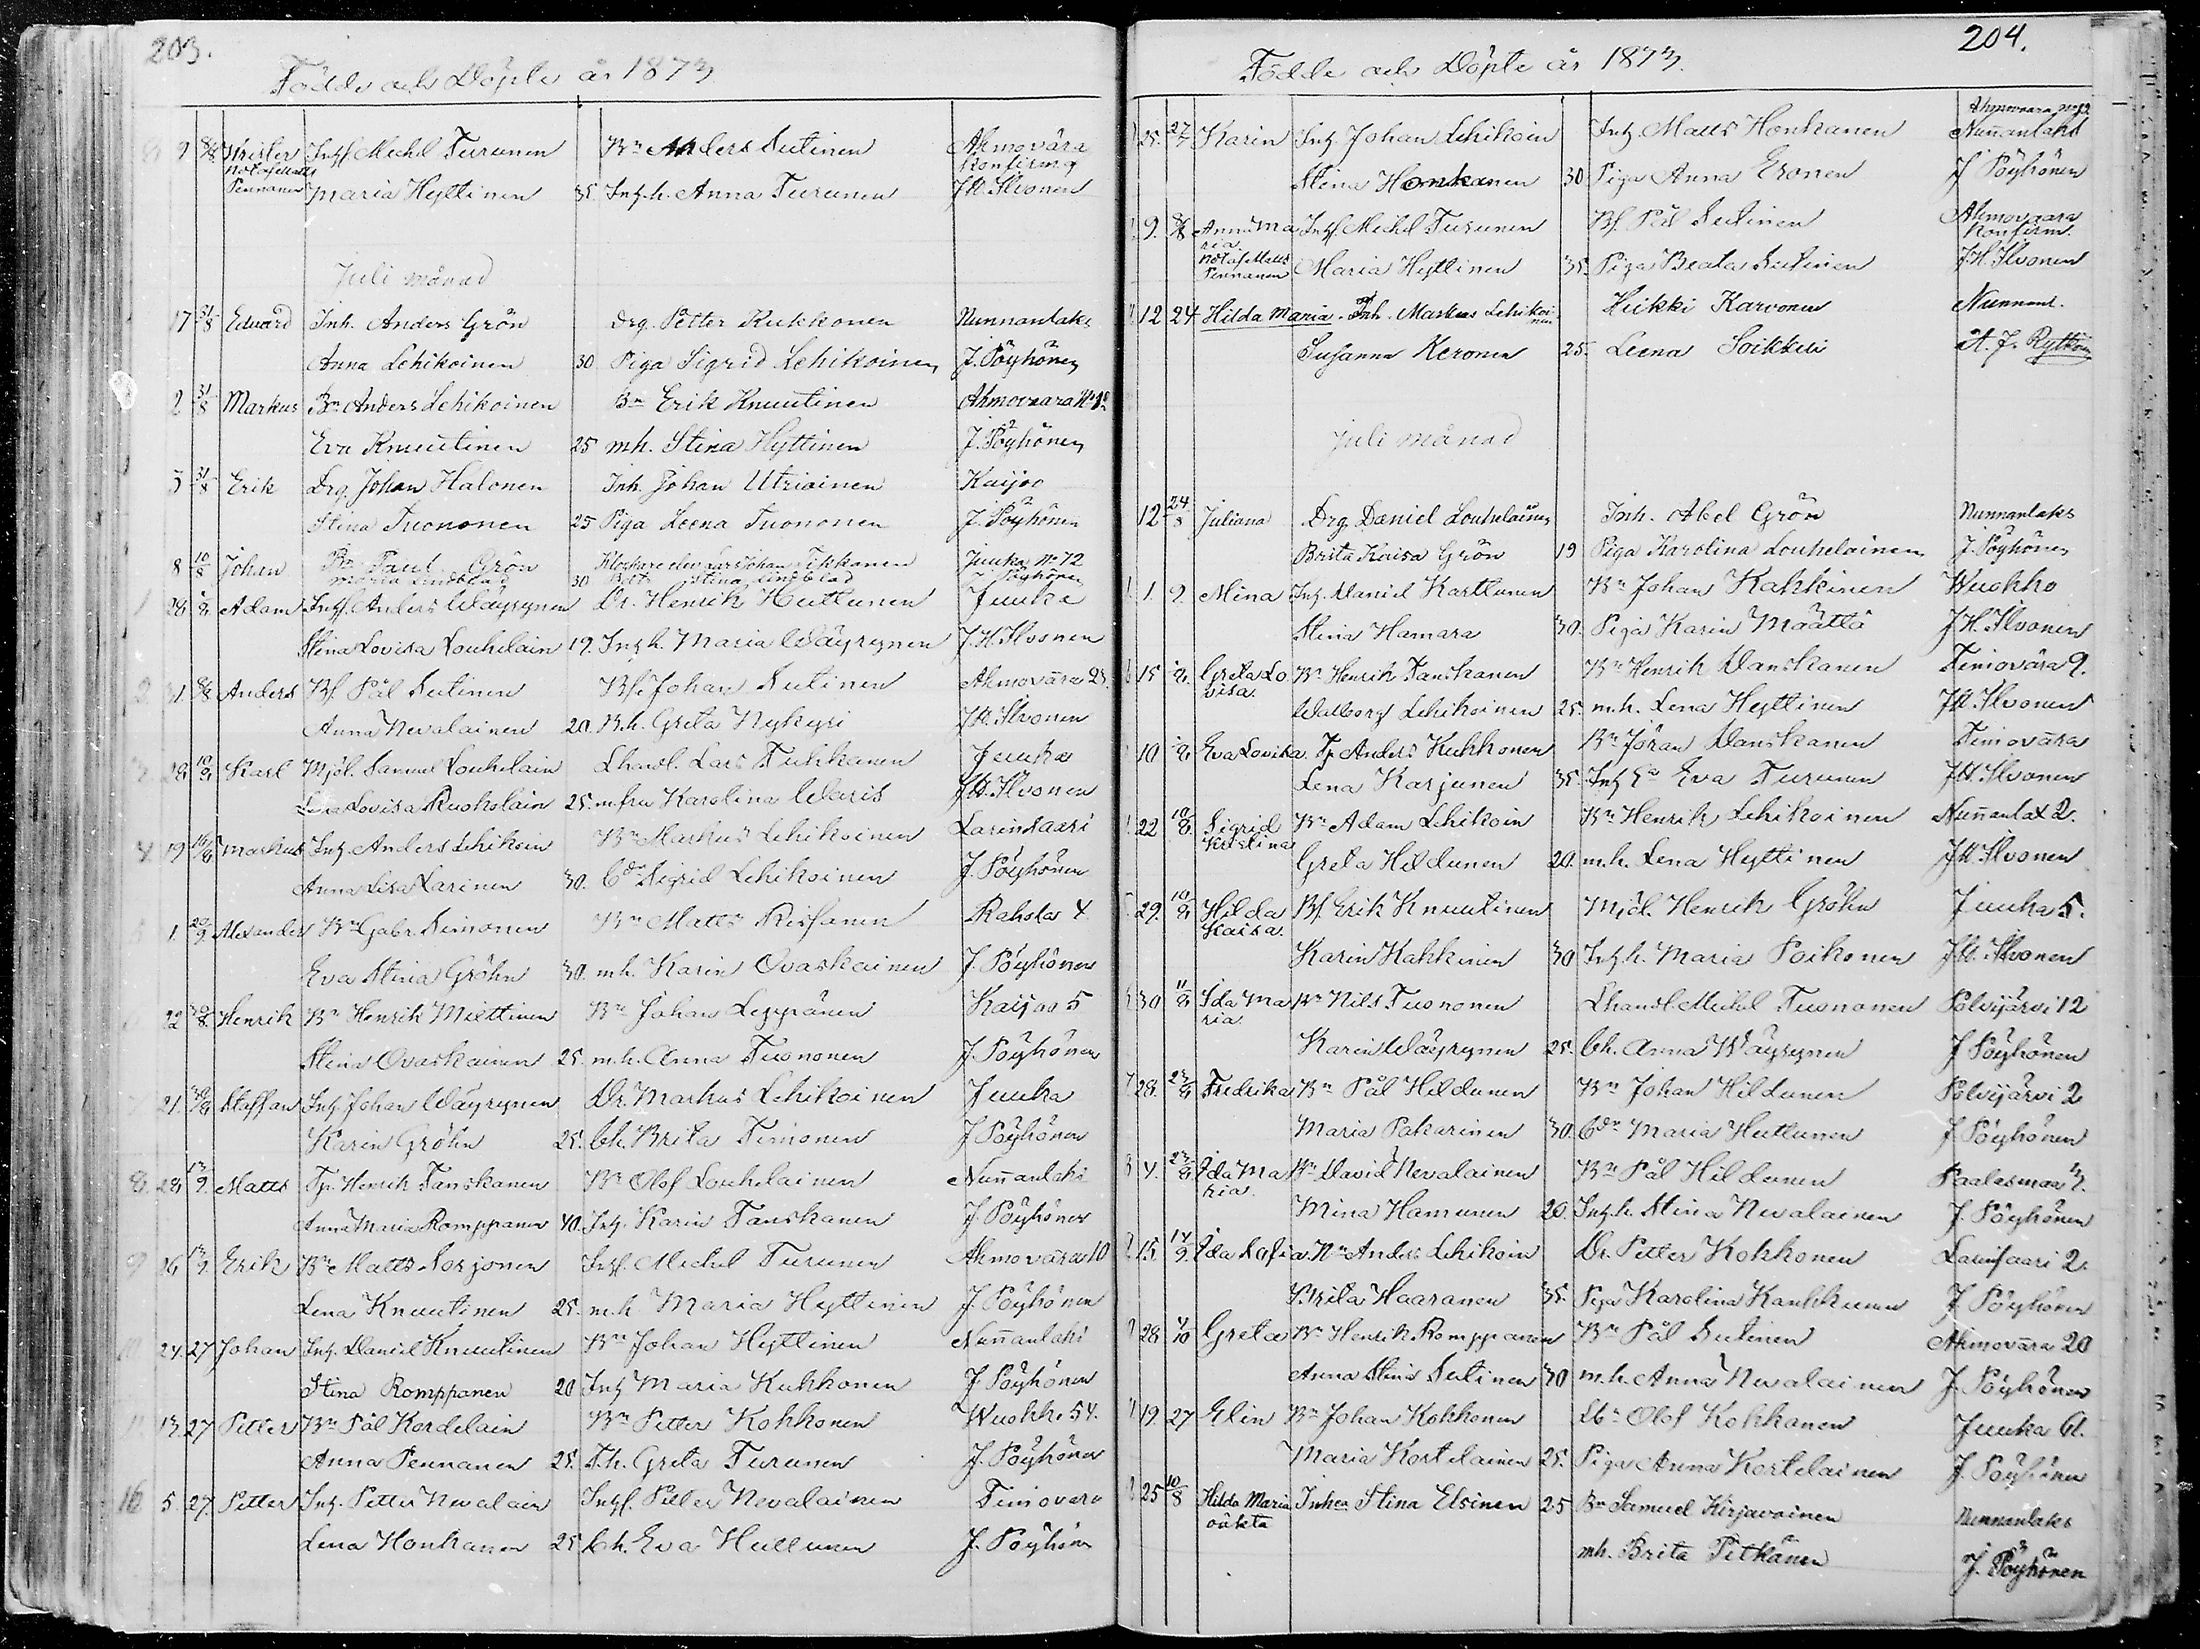 203.
Födde och Döpte år 1873
9 8/8 Inhs. Michel Turunen Bn Anders Sutinen Ahmovåra
not af Matts konfirmq
Pennanen Maria Hyttinen 35. Inh.h. Anna Turunen J.H. Ilvonen
Juli månad
17 31/8 Eduard Inh. Anders Grön Drg. Petter Kukkonen Nunnanlaks
Anna Lehikoinen 30 Piga Sigrid Lehikoinen J. Pöyhönen
2 31/8 Markus Bn Anders Lehikoinen Bn Erik Knuutinen Ahmovaara
Eva Knuutinen 25 mh. Stina Hyttinen J. Pöyhönen
3 31/8 Erik Drg. Johan Halonen Inh. Johan Utriainen Kaijoo
Stina Tuononen 25 Piga Leena Tuononen J. Pöyhönen
8 10/8 Johan Bn Paul Grön Klockare elev Lars Johan Tikkanen Juuka No 72
Maria Lindblad 30 Stina Lindblad J. Pöyhönen
28 Adam Inhs. Anders Wäyrynen Dr. Henrik Huttunen Juuka
Stina Lovisa Louhelain 19. Inh.h. Maria Wäyrynen J.H. Ilvonen
31 Anders Bf. Pål Sutinen Bf. Johan Sutinen Ahmovåra 23.
Anna Nevalainen 20. B.h. Greta Nykyri J.H. Ilvonen
28 10/8 Karl Mjöl. Samuel Louhelain Lhandl. Lars Tukkanen Juuka
Lovisa Ruokolain 25. m.fru Karolina Waris J.H. Ilvonen
4. 19 Markus Inh. Anders Lehikoin Bn Markus Lehikoinen Larinsaari
Anna Lisa Larinen 30. Sigrid Lehikoinen J. Pöyhönen
1. Alexander Bn Gabr. Simonen Bn Matts Rissanen Rahola 4
Eva Stina Gröhn 30. m.h. Karin Ovaskainen J. Pöyhönen
22 Henrik Bn Henrik Miettinen Bn Johan Leppänen Kaijoo 5
Stina Ovaskainen 25. m.h. Anna Tuononen J. Pöyhönen
21. Staffan Inh. Johan Wäyrynen Dr. Markus Lehikoinen Juuka
Karin Gröhn 25. Brita Timonen J. Pöyhönen
8. 28 13/9. Matts Tp. Henrik Tanskanen Bn Olof Louhelainen Nunnanlaks
Anna Maria Romppanen 40. Inh. Karin Tanskanen J. Pöyhönen
9 26 13/9. Erik Bn Matts Sorjonen Inhs. Michel Turunen Ahmovåra 10
Lena Knuutinen 25. m.h. Maria Hyttinen J. Pöyhönen
10 24. 27 Johan Inh. Daniel Knuutinen Bn Johan Hyttinen Nunnanlaks
Stina Romppanen 20 Inh. Maria Kukkonen J. Pöyhönen
11 13. 27 Petter Bn Pål Kordelain Bn Petter Kokkonen Wuokko 54.
Anna Pennanen 25. T.h. Greta Turunen J. Pöyhönen
16 5. 27. Petter Inh. Petter Nevalain Inhs. Petter Nevalainen Timovara
Lena Honkanen 25. Eva Huttunen J. Pöyhönen
204.
Födde och Döpte år 1873.
Ahmovaara
25. 27/7 Karin Inh. Johan Lehikoin Inh. Matts Honkanen Nunnanlaks
Stina Honkanen 30 Piga Anna Eronen J. Pöyhönen
9. 8/8 Anna Maria Inhs. Michel Turunen Bf. Pål Sutinen Ahmovaara
Konfirm.
not af Matts Pennanen Maria Hyttinen 35. Piga Beata Sutinen J.H. Ilvonen
12 24 Hilda Maria Inh. Markus Lehikoinen Heikki Karvonen Nunnanl.
Susanna Keronen 25. Leena Soikkeli A. J. Rytkön
Juli månad
12 24/8 Juliana Drg. Daniel Louhelainen Inh. Abel Grön Nunnanlaks
Brita Kaisa Grön 19 Piga Karolina Louhelainen J. Pöyhönen
1. 9. Mina Inh. Daniel Karttunen Bn Johan Kakkinen Wuokko
Stina Hamara 30. Piga Karin Määttä J.H. Ilvonen
15 Greta Lovisa. Bn Henrik Tanskanen Bn Henrik Danskanen Timovåra 9.
Walborg Lehikoinen 25. m.h. Lena Hyttinen J.H. Ilvonen
10 Eva Lovisa Tp. Anders Kukkonen Bn Jöran Danskanen Timovåra
Lena Karjunen 35. Eva Turunen J.H. Ilvonen
22 10/8. Sigrid Kristina Bn Adam Lehikoin Bn Henrik Lehikoinen Nunnanlax 2.
Greta Hildunen 20. m.h. Lena Hyttinen J.H. Ilvonen
29. 10/8 Hilda Kaisa. Bf. Erik Knuutinen Mjöl. Henrik Gröhn Juuka 5.
Karin Kakkinen 30 Inh.h. Maria Poikonen J.H. Ilvonen
30 11/8 Ida Maria. Bn Nils Tuononen Lhandl. Michel Tuononen Polvijärvi 12
Karin Wäyrynen 25. Anna Wäyrynen J. Pöyhönen
28. 23/8 Fredrika Bn Pål Hildunen Bn Johan Hildunen Polvijärvi 2
Maria Pakarinen 30. Maria Huttunen J. Pöyhönen
4. 23/8 Ida Maria. Bn David Nevalainen Bn Pål Hildunen Paalasmaa
Mina Hamunen 20. Inh.h. Stina Nevalainen J. Pöyhönen
15. 14/9. Ida Sofia Bn Anders Lehikoin Dr. Petter Kokkonen Larinsaari 2.
Brita Haaranen 35. Piga Karolina Kankkunen J. Pöyhönen
28. 4/10 Greta Bn Henrik Romppanen Bn Pål Sutinen Ahmovåra 20
Anna Stina Sutinen 30 m.h. Anna Nevalainen J. Pöyhönen
19. 27 Elin Bn Johan Kokkonen Olof Kokkanen Juuka 61.
Maria Kortelainen 25. Piga Anna Kortelainen J. Pöyhönen
25 10/8 Hilda Maria Inhen Stina Elsinen 25 Bn Samuel Kirjavainen Nunnanlaks
oäkta
mh. Brita Pitkänen J. Pöyhönen